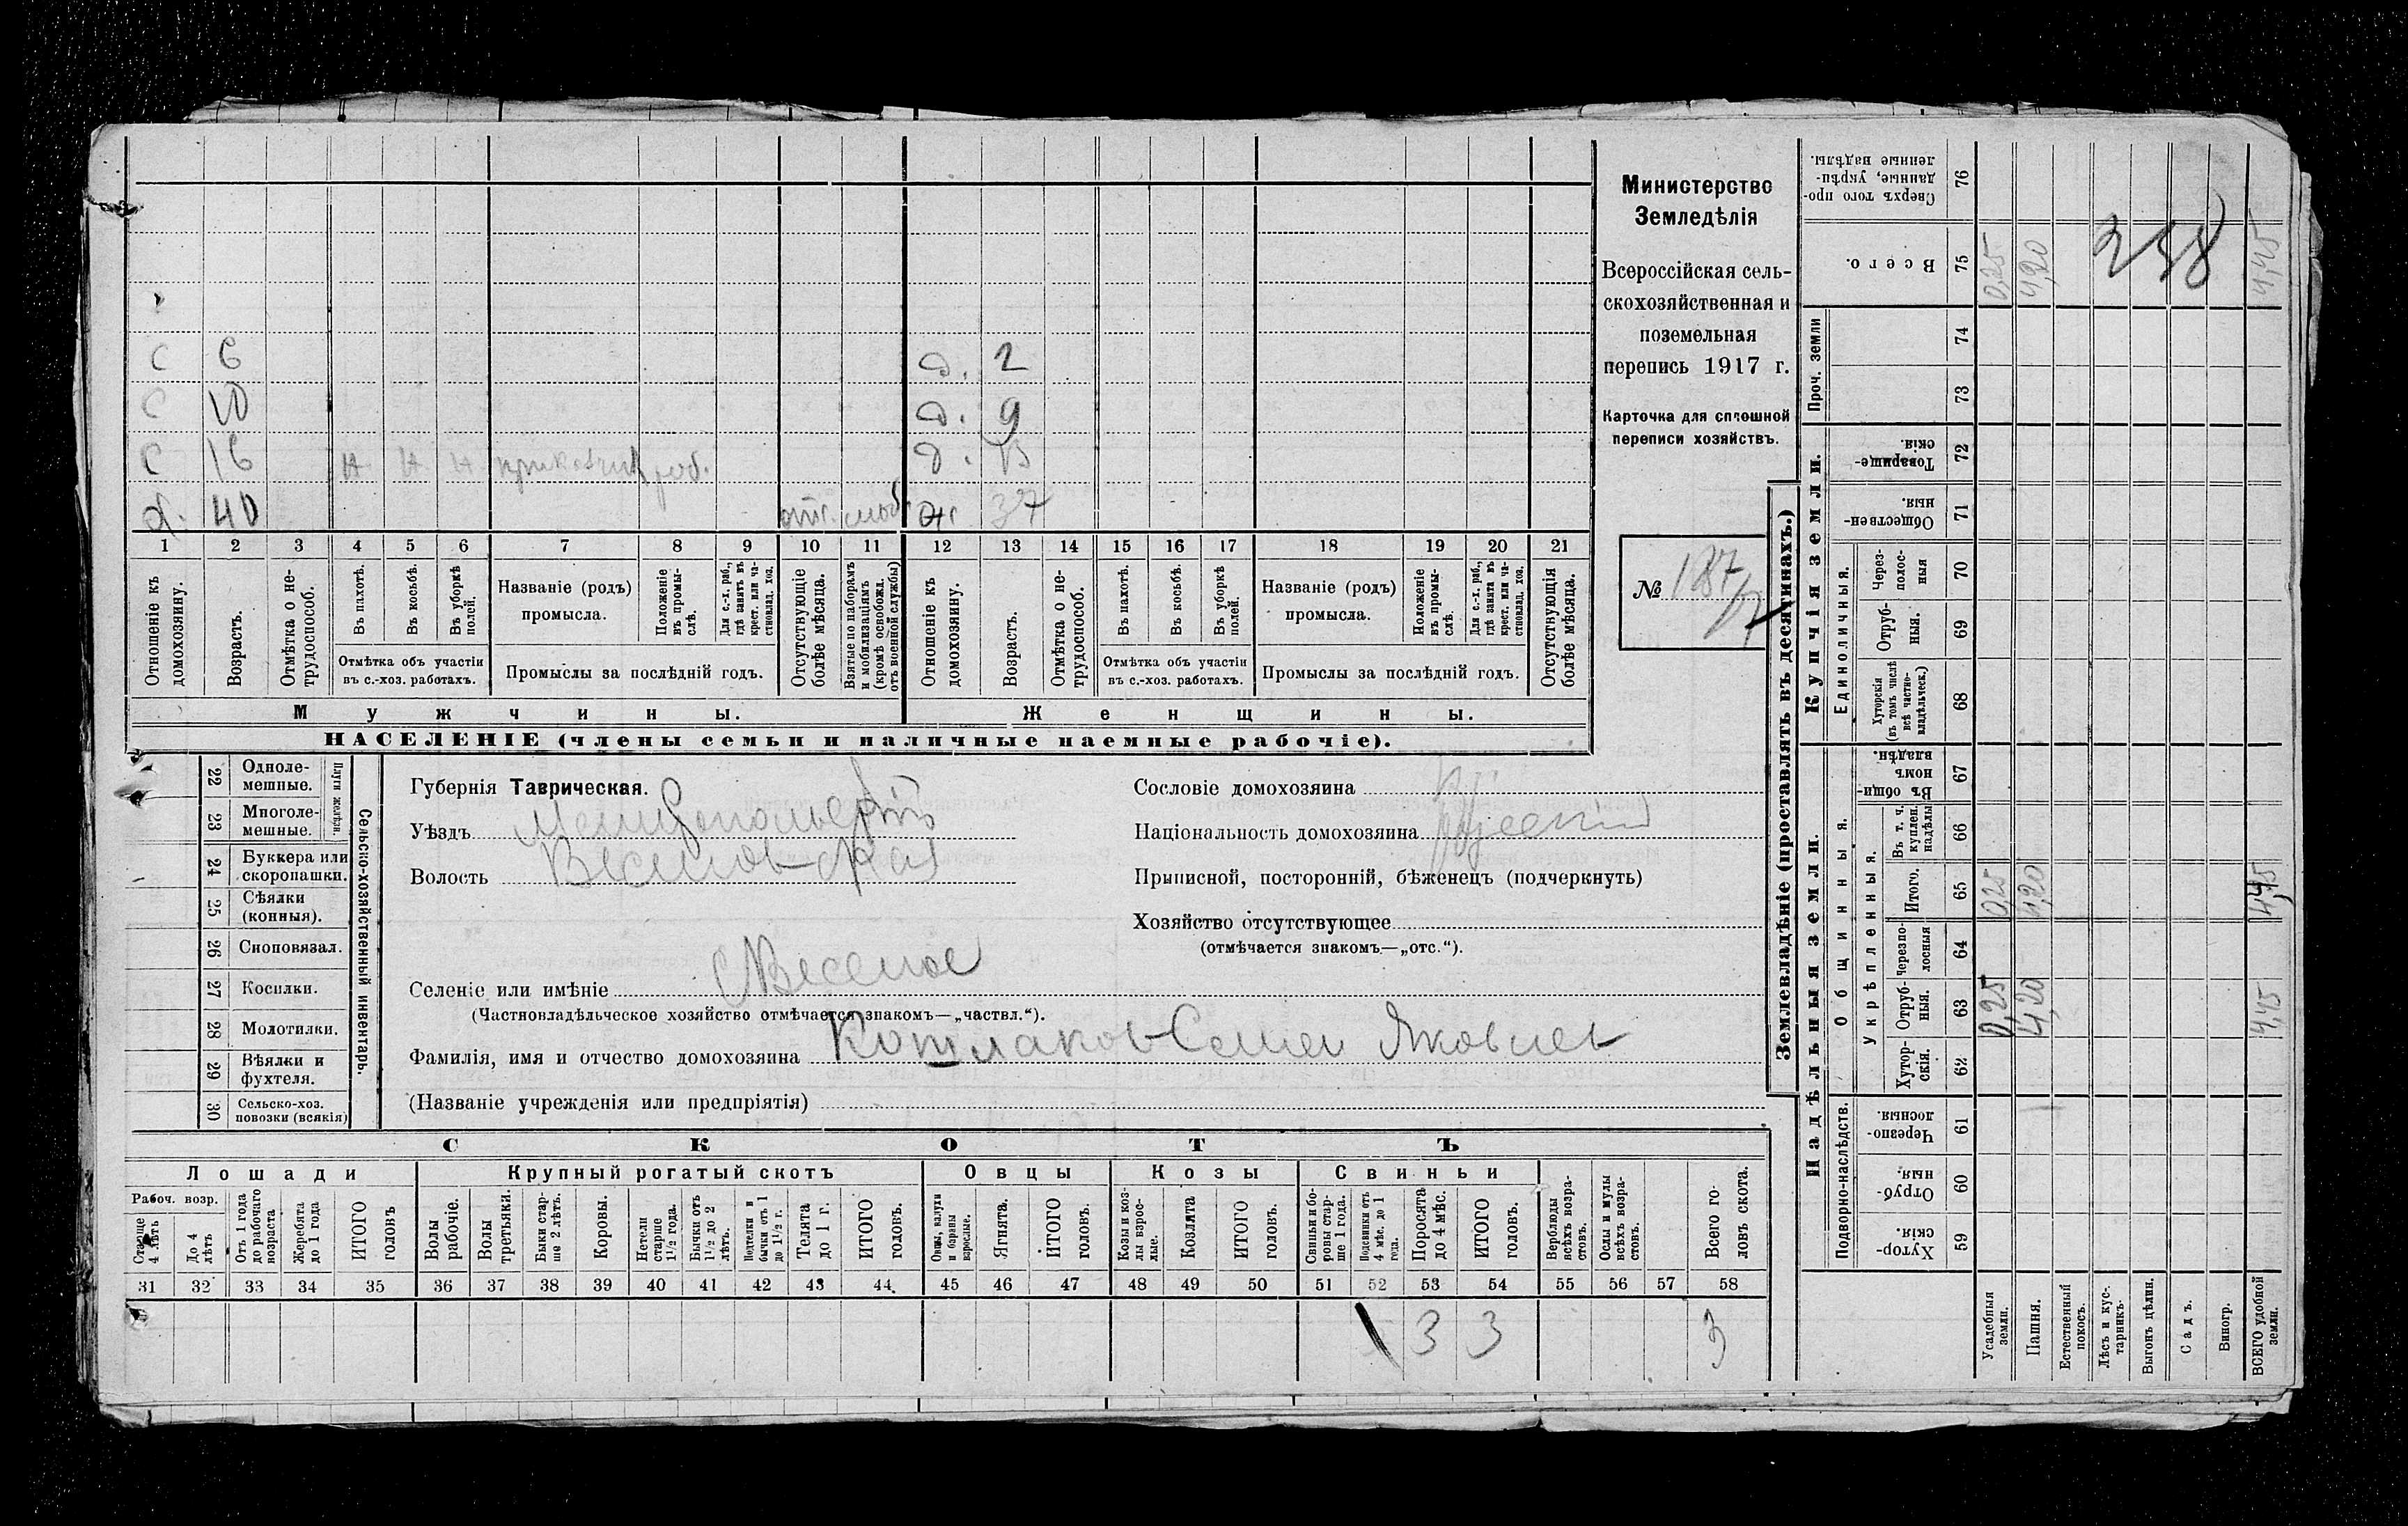 Министерство
Земледѣлія
Всероссійская сель-
скохозяйственная и
поземельная
перепись 1917 г.
Карточка для сплошной
переписи хозяйствъ.
№ 187
238
с 6
с 10
с 16 н н н приказчик роб.
х. 40 отс. моб.
д. 2
д. 9
д. 13
ж 37
1 2 3 4 5 6 7 8 9 10 11 12 13 14 15 16 17 18 19 20 21
Отношеніе къ домохозяину.
Возрастъ.
Отмѣтка о не-трудоспособ.
Въ пахотѣ.
Въ косьбѣ.
Въ уборкѣ полей.
Отмѣтка объ участіи въ с.-хоз. работахъ.
Названіе (родъ) промысла.
Положеніе въ промы-слѣ.
Для с.-х. раб., гдѣ занятъ въ крест. или ча-стновлад. хоз.
Промыслы за послѣдній годъ.
Отсутствующіе болѣе мѣсяца.
Взятые по наборамъ и мобилизаціямъ (кромѣ освобожд. отъ военной службы)
Отношеніе къ домохозяину.
Возрастъ.
Отмѣтка о не-трудоспособ.
Въ пахотѣ.
Въ косьбѣ.
Въ уборкѣ полей.
Отмѣтка объ участіи въ с.-хоз. работахъ.
Названіе (родъ) промысла.
Положеніе въ промы-слѣ.
Для с.-х. раб., гдѣ занята въ крест. или ча-стновлад. хоз.
Промыслы за послѣдній годъ.
Отсутствующія болѣе мѣсяца.
Мужчины. Женщины.
НАСЕЛЕНІЕ (члены семьи и наличные наемные рабочіе).
22 Одноле-мешные.
23 Многоле-мешные.
Плуги желѣзн.
24 Буккера или скоропашки.
25 Сѣялки (конныя).
26 Сноповязал.
27 Косилки.
28 Молотилки.
29 Вѣялки и фухтеля.
30 Сельско-хоз. повозки (всякія)
Сельско-хозяйственный инвентарь.
Губернія Таврическая.
Уѣздъ Мелитопольскій
Волость Веселовская
Селеніе или имѣніе с Веселое
(Частновладѣльческое хозяйство отмѣчается знакомъ—„частвл.“).
Фамилія, имя и отчество домохозяина Котляков Семен Яковлев
(Названіе учрежденія или предпріятія)
Сословіе домохозяина
Національность домохозяина русскій
Приписной, посторонній, бѣженецъ (подчеркнуть)
Хозяйство отсутствующее
(отмѣчается знакомъ—„отс.“).
СКОТЪ
Лошади Крупный рогатый скотъ Овцы Козы Свиньи
Рабоч. возр.
Старше 4 лѣтъ
До 4 лѣтъ
Отъ 1 года до рабочаго возраста
Жеребята до 1 года
ИТОГО головъ
Волы рабочіе.
Волы третьяки.
Быки стар-ше 2 лѣтъ.
Коровы.
Нетели старше 1½ года.
Бычки отъ 1½ до 2 лѣтъ.
Подтелки и бычки отъ 1 до 1½ г.
Телята до 1 г.
ИТОГО головъ.
Овцы, валухи и бараны взрослые.
Ягнята.
ИТОГО головъ.
Козы и коз-лы взрос-лые.
Козлята
ИТОГО головъ.
Свиньи и бо-ровы стар-ше 1 года.
Подсвинки отъ 4 мѣс. до 1 года.
Поросята до 4 мѣс.
ИТОГО головъ.
Верблюды всѣхъ возра-стовъ.
Ослы и мулы всѣхъ возра-стовъ.
Всего го-ловъ скота.
31 32 33 34 35 36 37 38 39 40 41 42 43 44 45 46 47 48 49 50 51 52 53 54 55 56 57 58
3 3 3
Землевладѣніе (проставлять въ десятинахъ.)
Надѣльныя земли. Купчія земли. Проч. земли
Подворно-наслѣдств.
Общинныя.
Укрѣпленныя.
Единоличныя.
Хутор-скія. 59
Отруб-ныя. 60
Черезпо-лосныя. 61
Хутор-скія. 62
Отруб-ныя. 63
Черезпо-лосныя 64
Итого. 65
Въ т. ч. куплен. надѣлы 66
Въ общин-номъ владѣн. 67
Хуторскія (въ томъ числѣ всѣ частно-владѣльческ.) 68
Отруб-ныя. 69
Через-полос-ныя 70
Обществен-ныя. 71
Товарище-скія. 72
73
74
Всего. 75
Сверхъ того про-данные, укрѣп-ленные надѣлы. 76
Усадебныя земли. 0,25 0,25 0,25
Пашня. 4,20 4,20 4,20
Естественный покосъ.
Лѣсъ и кус-тарникъ.
Выгонъ цѣлин.
Садъ.
Виногр.
ВСЕГО удобной земли. 4,45 4,45 4,45